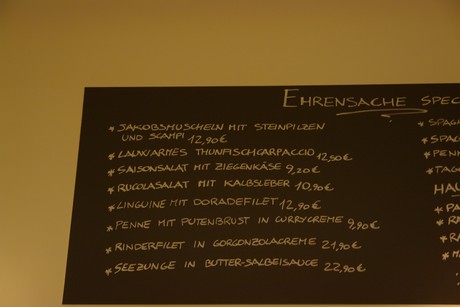 EHRENSACHE SPEC
* JAKOBSMUSCHELN MIT STEINPILZEN
UND SCAMPI 12,90€
* LAUWARMES THUNFISCHCARPACCIO 12,50€
* SAISONSALAT MIT ZIEGENKÄSE 9,20€
* RUCOLASALAT MIT KALBSLEBER 10,90€
* LINGUINE MIT DORADEFILET 12,90€
* PENNE MIT PUTENBRUST IN CURRYCREME 9,90€
* RINDERFILET IN GORGONZOLACREME 21,90€
* SEEZUNGE IN BUTTER-SALBEISAUCE 22,90€
* SPAG
* SPAG
* PENN
* TAG
HAU
* PA
* RA
* RA